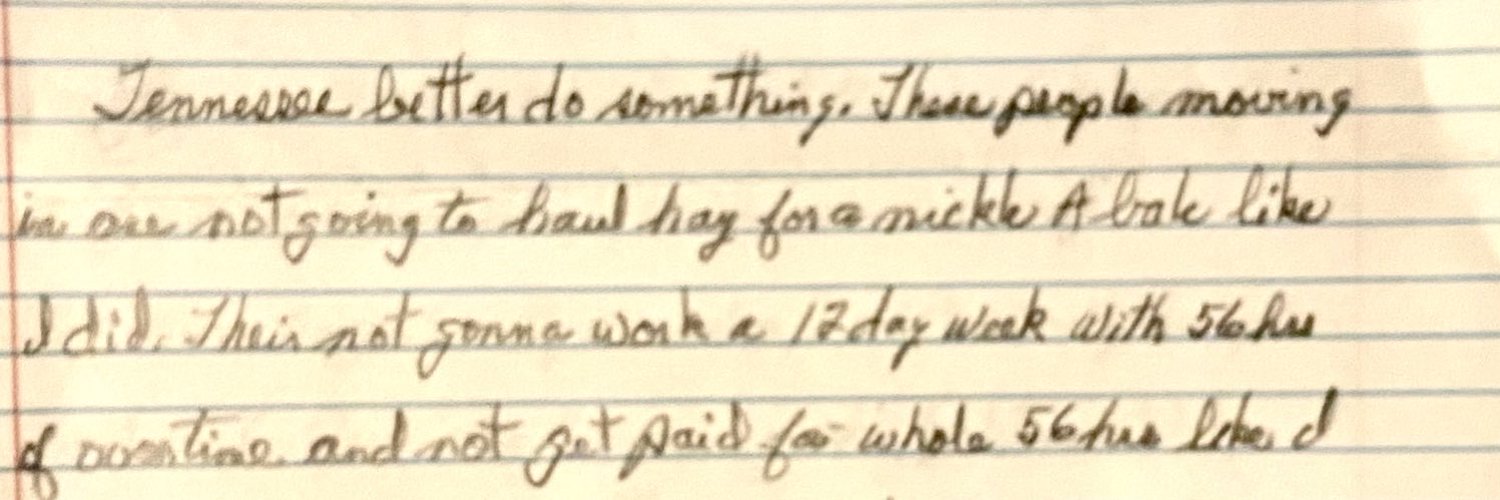 Tennessee better do something. These people moving
in are not going to haul hay for a nickle A bale like
I did. Their not gonna work a 12 day week with 56 hrs
of overtime and not get paid for whole 56 hrs like I